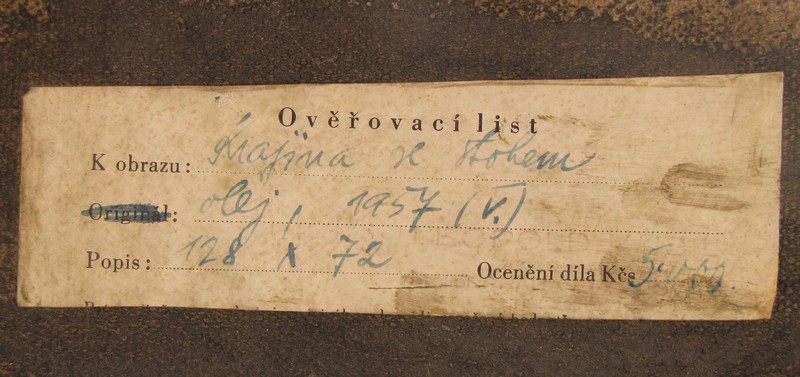 Ověřovací list
K obrazu: Krajina se stohem
Originál: olej, 1957 (V.)
Popis: 128 x 72 Ocenění díla Kčs